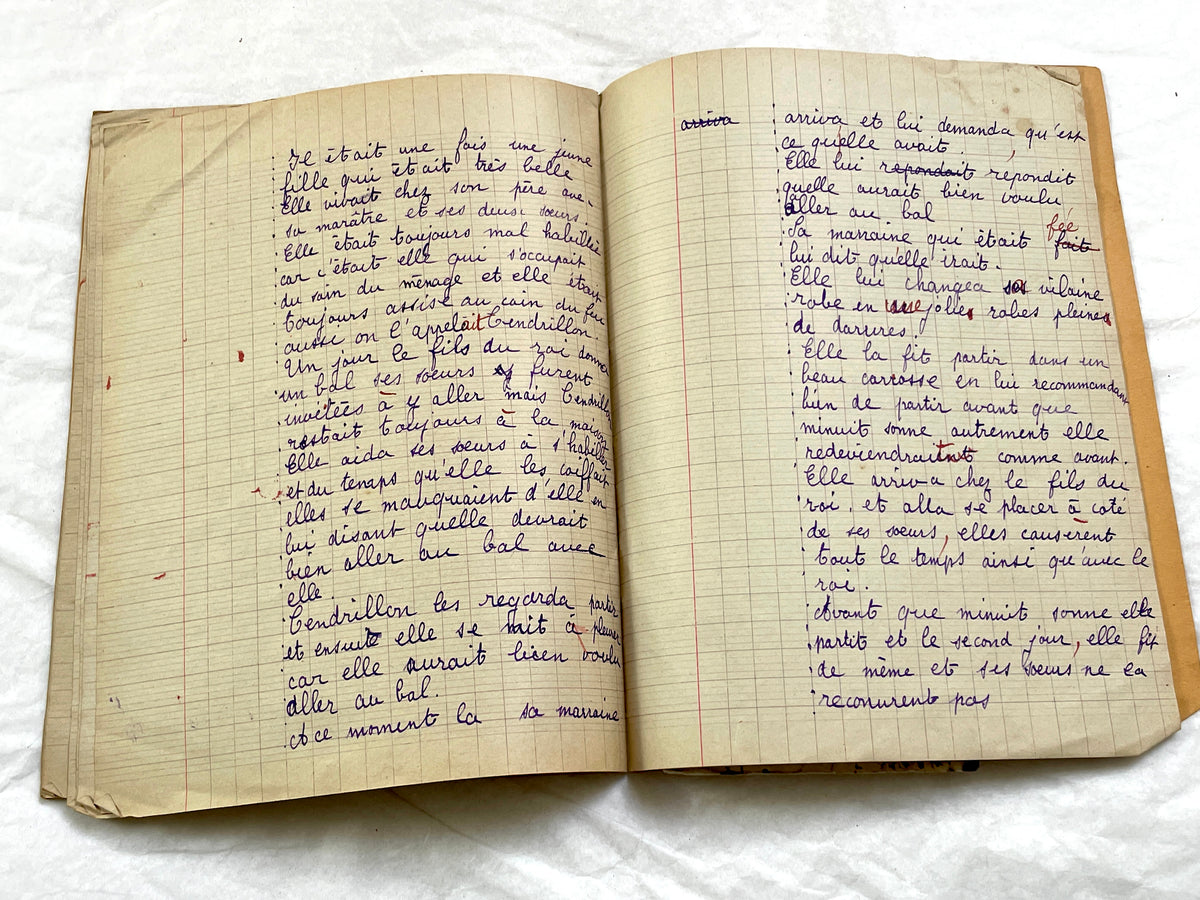 Il était une fois une jeune
fille qui était très belle
Elle vivait chez son père avec
sa marâtre et ses deux sœurs.
Elle était toujours mal habillée
car c'était elle qui s'occupait
du soin du ménage et elle était
toujours assise au coin du feu
aussi on l'appelait Cendrillon.
Un jour le fils du roi donna
un bal ses sœurs y furent
invitées à y aller mais Cendrillon
restait toujours à la maison
Elle aida ses sœurs à s'habiller
et du temps qu'elle les coiffait
elles se mauquaient d'elle en
lui disant quelle devrait
bien aller au bal avec
elle.
Cendrillon les regarda partir
et ensuite elle se mit à pleurer
car elle aurait bien voulu
aller au bal.
A ce moment la sa marraine
arriva
arriva et lui demanda, qu'est
ce quelle avait.
Elle lui repondait répondit
quelle aurait bien voulu
aller au bal
fée
Sa marraine qui était fait
lui dit qu'elle irait.
Elle lui changea sa vilaine
robe en une jolies robes pleines
de dorures.
Elle la fit partir dans un
beau carosse en lui recommandant
bien de partir avant que
minuit sonne autrement elle
redeviendrait comme avant.
Elle arriva chez le fils du
roi, et alla se placer à coté
de ses sœurs, elles causerent
tout le temps ainsi qu'avec le
roi.
Avant que minuit sonne elle
partit et le second jour, elle fit
de même et ses sœurs ne la
reconurent pas